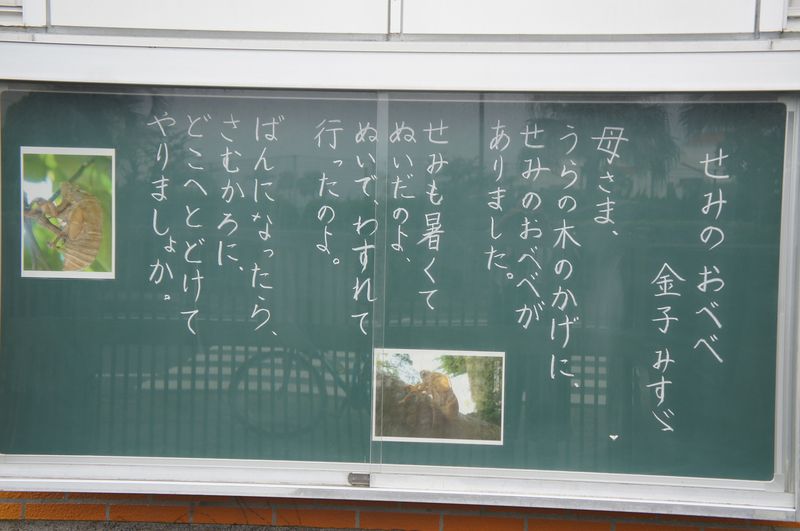 せみのおべべ
金子 みすゞ
母さま、
うらの木のかげに、
せみのおべべが
ありました。
せみも暑くて
ぬいだのよ、
ぬいで、わすれて
行ったのよ。
ばんになったら、
さむかろに、
どこへとどけて
やりましょか。